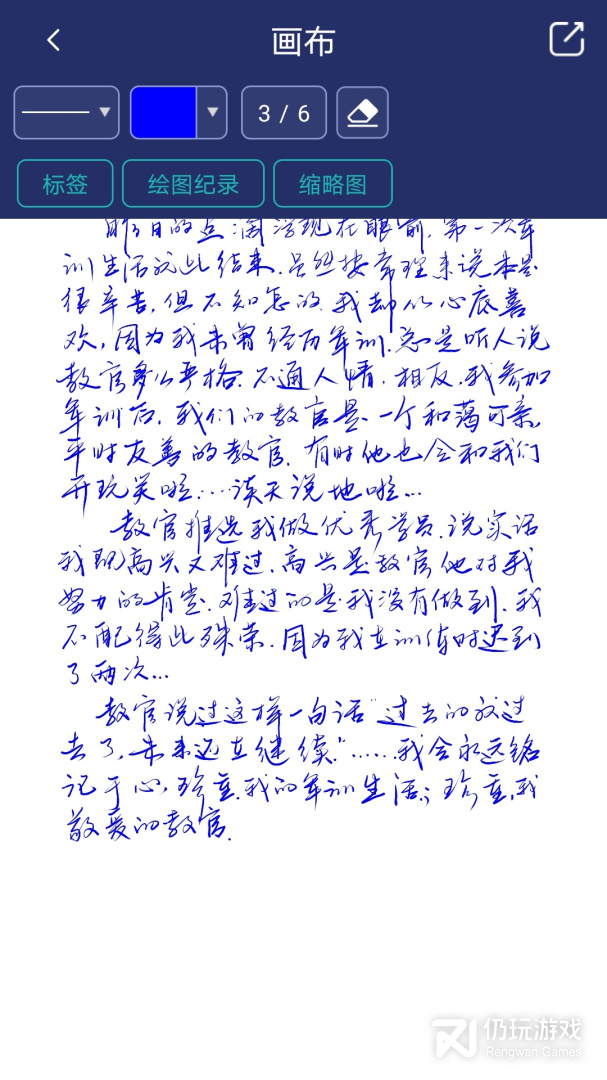 画布
3 / 6
标签 绘图纪录 缩略图
昨日的点滴浮现在眼前，第一次军
训生活就此结束，虽然按常理来说本是
很辛苦，但不知怎的，我却从心底喜
欢，因为我未曾经历军训，总是听人说
教官多么严格，不通人情，相反，我参加
军训后，我们的教官是一个和蔼可亲，
平时友善的教官，有时他也会和我们
开玩笑啦....谈天说地啦...
教官推选我做优秀学员，说实话
我既高兴又难过，高兴是教官他对我
努力的肯定，难过的是我没有做到，我
不配得此殊荣，因为我在训练时迟到
了两次...
教官说过这样一句话"过去的放过
去了，未来还在继续."......我会永远铭
记于心，珍重，我的军训生活；珍重，我
敬爱的教官.
仍玩游戏
Rengwan Games